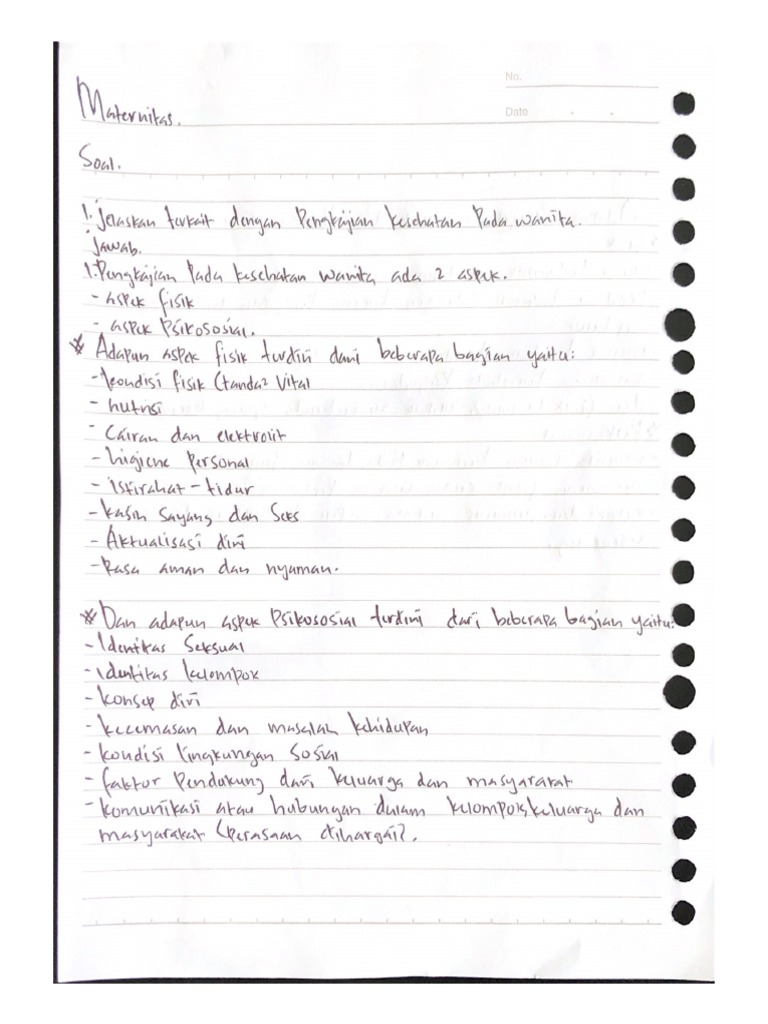 No.
Date
Maternitas.
Soal.
1. jelaskan terkait dengan Pengkajian kesehatan Pada wanita.
jawab.
1. Pengkajian Pada kesehatan wanita ada 2 aspek.
- aspek fisik
- aspek Psikososial.
* Adapun aspek fisik terdiri dari beberapa bagian yaitu:
- kondisi fisik (tanda² Vital
- nutrisi
- Cairan dan elektrolit
- higiene personal
- istirahat - tidur
- kasih sayang dan Seks
- Aktualisasi diri
- Rasa aman dan nyaman.
* Dan adapun aspek Psikososial terdiri dari beberapa bagian yaitu:
- Identitas Seksual
- identitas kelompok
- konsep diri
- kecemasan dan masalah kehidupan
- kondisi lingkungan Sosial
- faktor Pendukung dari keluarga dan masyarakat
- komunikasi atau hubungan dalam kelompok, keluarga dan
masyarakat (perasaan dihargai).